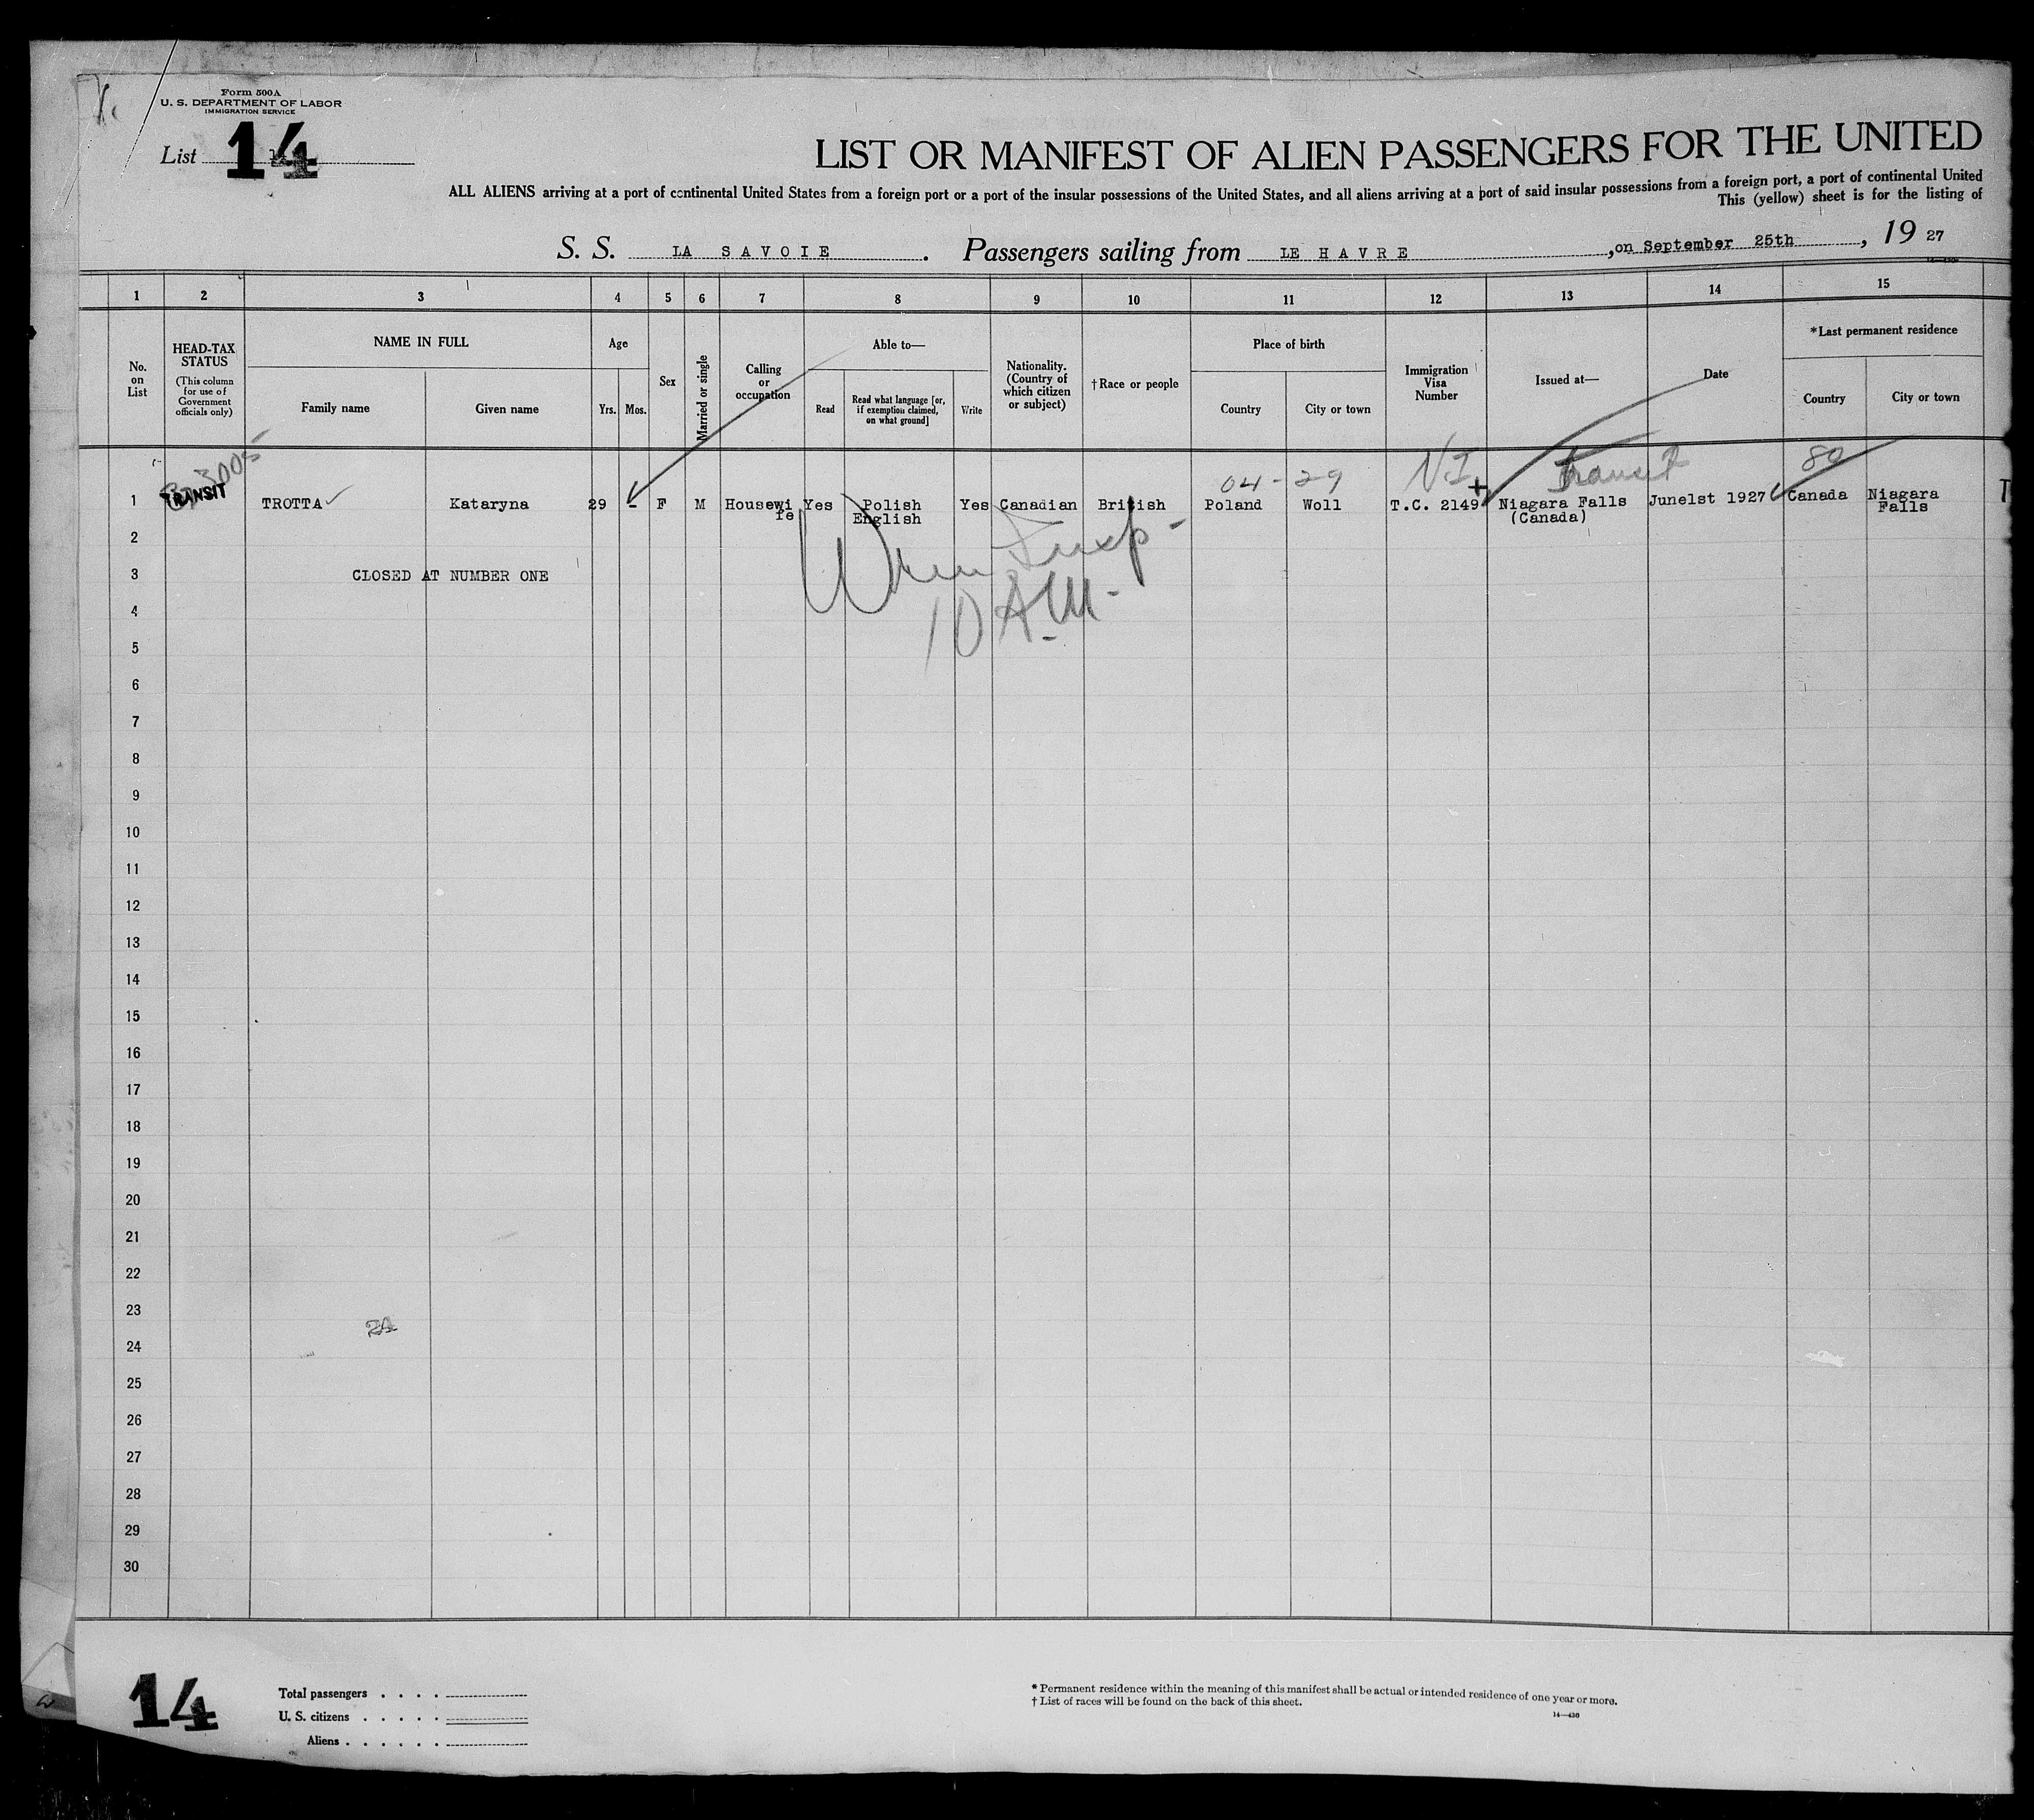 Form 500A
U. S. DEPARTMENT OF LABOR
IMMIGRATION SERVICE
List 14
LIST OR MANIFEST OF ALIEN PASSENGERS FOR THE UNITED
ALL ALIENS arriving at a port of continental United States from a foreign port or a port of the insular possessions of the United States, and all aliens arriving at a port of said insular possessions from a foreign port, a port of continental United
This (yellow) sheet is for the listing of
S. S. LA SAVOIE. Passengers sailing from LE HAVRE, on September 25th, 19 27
1 2 3 4 5 6 7 8 9 10 11 12 13 14 15
No. on List
HEAD-TAX STATUS
(This column for use of Government officials only)
NAME IN FULL
Family name
Given name
Age
Yrs.
Mos.
Sex
Married or single
Calling or occupation
Able to—
Read
Read what language [or, if exemption claimed, on what ground]
Write
Nationality. (Country of which citizen or subject)
†Race or people
Place of birth
Country
City or town
Immigration Visa Number
Issued at—
Date
*Last permanent residence
Country
City or town
3005
04-29 N.I. Transit 80
1 TRANSIT TROTTA Kataryna 29 - F M Housewi Yes Polish Yes Canadian British Poland Woll T.C. 2149 Niagara Falls June1st 1927 Canada Niagara
fe English (Canada) Falls
2
3 CLOSED AT NUMBER ONE
10 A.M.
4
5
6
7
8
9
10
11
12
13
14
15
16
17
18
19
20
21
22
23
24
25
26
27
28
29
30
14
Total passengers . . . .
U. S. citizens . . . . .
Aliens . . . . . .
* Permanent residence within the meaning of this manifest shall be actual or intended residence of one year or more.
† List of races will be found on the back of this sheet.
14—430